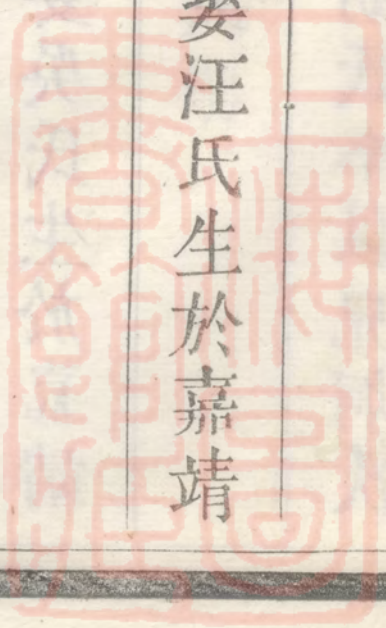 娶汪氏生於嘉靖